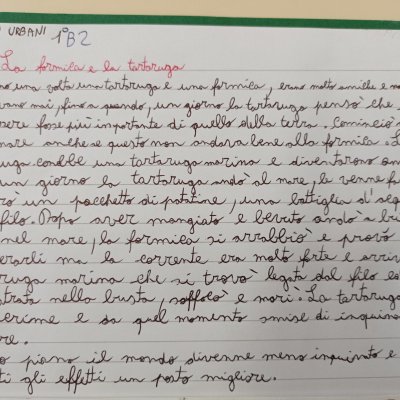 URBANI 1°B2
La formica e la tartaruga
no una volta una tartaruga e una formica, erano molto amiche e no
vano mai, fino a quando, un giorno la tartaruga pensò che
sere fose più importante di quello della terra. Cominciò
nare anche se questo non andava bene alla formica. L
uga conobbe una tartaruga marina e diventarono am
un giorno la tartaruga andò al mare, le venne fa
rò un pacchetto di patatine, una battiglia d'acq
filo. Dopo aver mangiato e bevuto andò a bu
nel mare, la formica si arrabbiò e provò
erarli ma la corrente era molto forte e arriv
ruga marina che si trovò legata dal filo e
strata nella busta, soffocò e morì. La tartaruga
crime e da quel momento smise di inquina
re.
o piano il mondo divenne meno inquinato e
ti gli effetti un posto migliore.